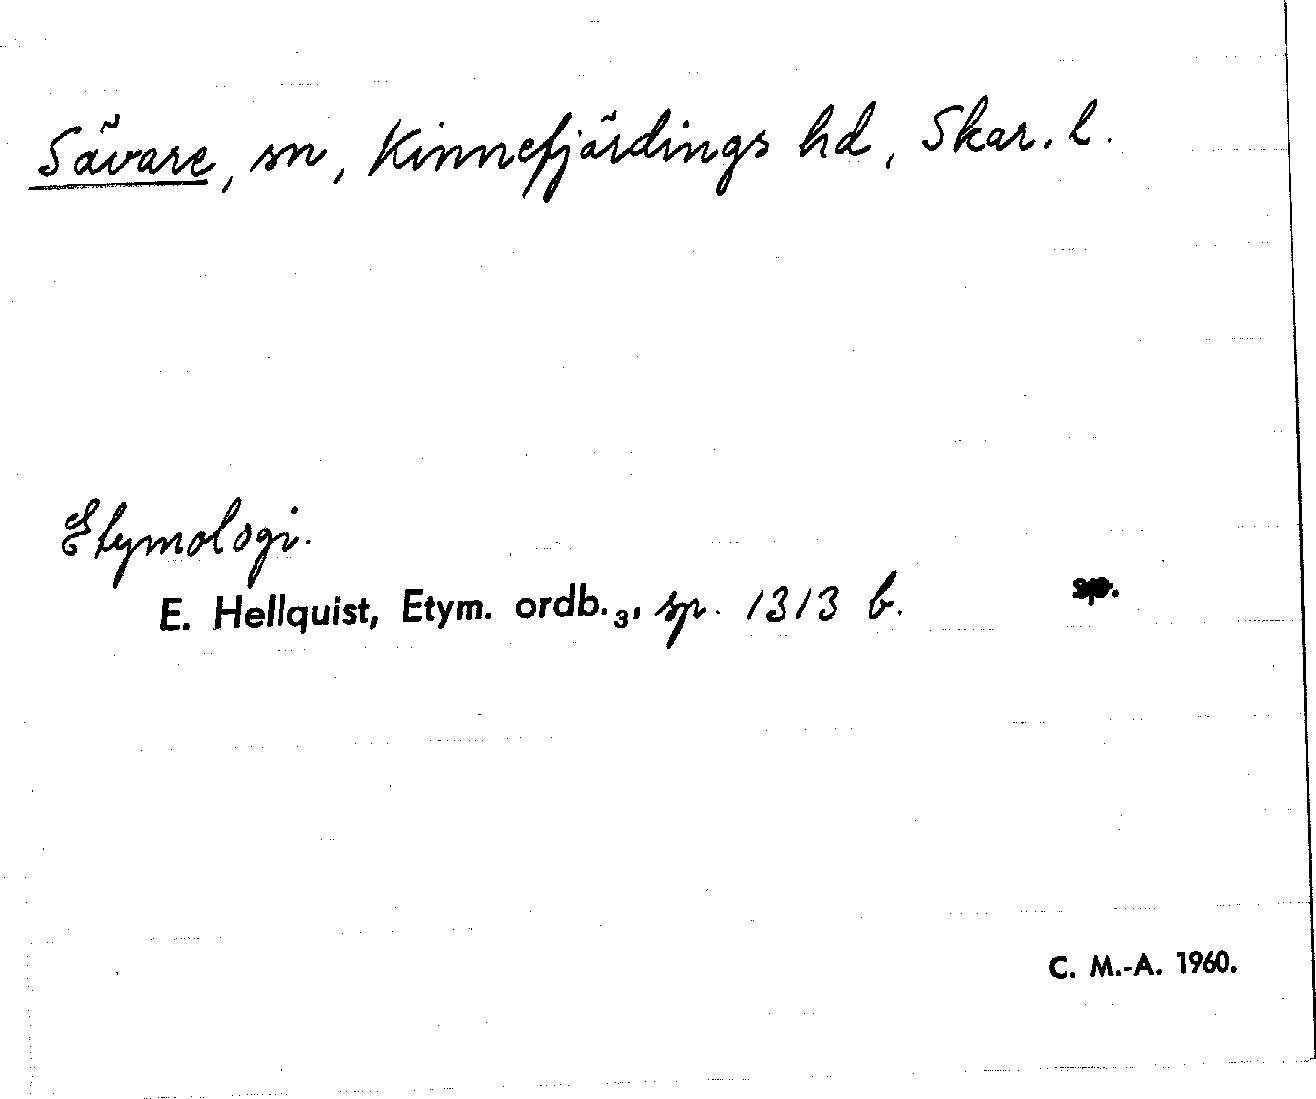 Sävare, sn, Kinnefjärdings hd, Skar. l.
Etymologi.
E. Hellquist, Etym. ordb.₃, sp. 1313 b.
C. M.-A. 1960.